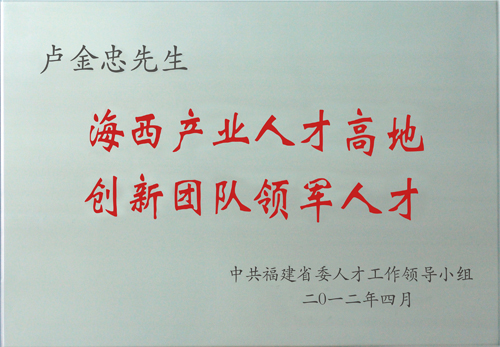 卢金忠先生
海西产业人才高地
创新团队领军人才
中共福建省委人才工作领导小组
二〇一二年四月